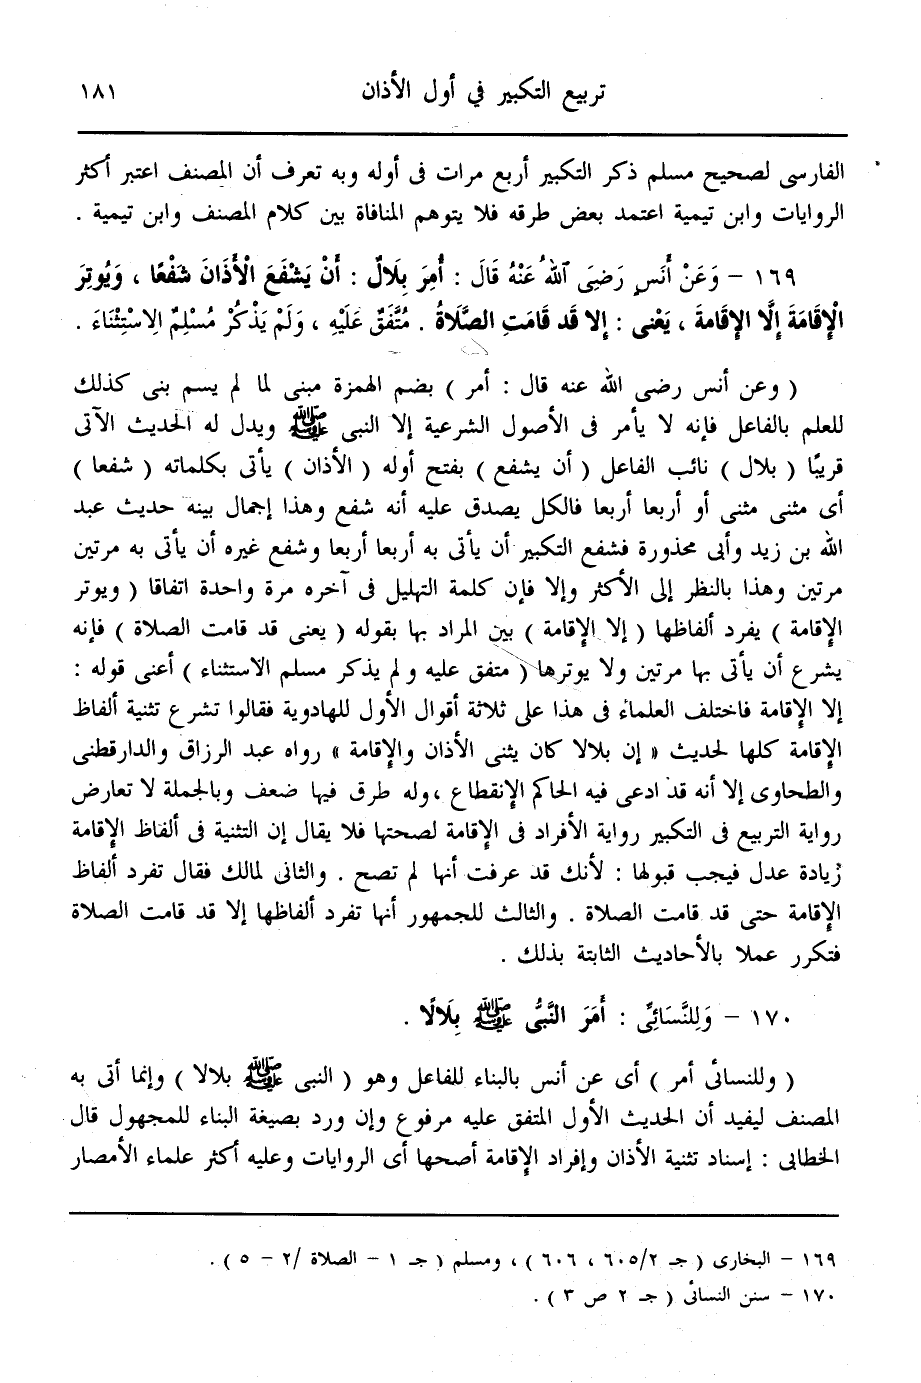 تربيع التكبير في أول الأذان ١٨١
الفارسى لصحيح مسلم ذكر التكبير أربع مرات فى أوله وبه تعرف أن المصنف اعتبر أكثر
الروايات وابن تيمية اعتمد بعض طرقه فلا يتوهم المنافاة بين كلام المصنف وابن تيمية .
١٦٩ – وَعَنْ أَنَسٍ رَضِىَ اللهُ عَنْهُ قَالَ : أُمِرَ بِلَالٌ : أَنْ يَشْفَعَ الْأَذَانَ شَفْعًا ، وَيُوتِرَ
الْإِقَامَةَ إِلَّا الإِقَامةَ ، يَعْنى : إلا قَد قَامَتِ الصَّلَاةُ . مُتَّفَقٌ عَلَيْهِ ، وَلَمْ يَذْكُرْ مُسْلِمٌ الِاسْتِثْنَاءَ .
( وعن أنس رضى الله عنه قال : أمر ) بضم الهمزة مبنى لما لم يسم بنى كذلك
للعلم بالفاعل فإنه لا يأمر فى الأصول الشرعية إلا النبى ﷺ ويدل له الحديث الآتى
قريبًا ( بلال ) نائب الفاعل ( أن يشفع ) بفتح أوله ( الأذان ) يأتى بكلماته ( شفعا )
أى مثنى مثنى أو أربعا أربعا فالكل يصدق عليه أنه شفع وهذا إجمال بينه حديث عبد
الله بن زيد وأبى محذورة فشفع التكبير أن يأتى به أربعا أربعا وشفع غيره أن يأتى به مرتين
مرتين وهذا بالنظر إلى الأكثر وإلا فإن كلمة التهليل فى آخره مرة واحدة اتفاقا ( ويوتر
الإقامة ) يفرد ألفاظها ( إلا الإقامة ) بين المراد بها بقوله ( يعنى قد قامت الصلاة ) فإنه
يشرع أن يأتى بها مرتين ولا يوترها ( متفق عليه و لم يذكر مسلم الاستثناء ) أعنى قوله :
إلا الإقامة فاختلف العلماء فى هذا على ثلاثة أقوال الأول للهادوية فقالوا تشرع تثنية ألفاظ
الإقامة كلها لحديث « إن بلالا كان يثنى الأذان والإقامة » رواه عبد الرزاق والدارقطنى
والطحاوى إلا أنه قد ادعى فيه الحاكم الإنقطاع ، وله طرق فيها ضعف وبالجملة لا تعارض
رواية التربيع فى التكبير رواية الأفراد فى الإقامة لصحتها فلا يقال إن التثنية فى ألفاظ الإقامة
زيادة عدل فيجب قبولها : لأنك قد عرفت أنها لم تصح . والثانى لمالك فقال تفرد ألفاظ
الإقامة حتى قد قامت الصلاة . والثالث للجمهور أنها تفرد ألفاظها إلا قد قامت الصلاة
فتكرر عملا بالأحاديث الثابتة بذلك .
١٧٠ – وَلِلنَّسَائِىِّ : أَمَرَ النَّبِىُّ ﷺ بِلَالًا .
( وللنسائى أمر ) أى عن أنس بالبناء للفاعل وهو ( النبى ﷺ بلالا ) وإنما أتى به
المصنف ليفيد أن الحديث الأول المتفق عليه مرفوع وإن ورد بصيغة البناء للمجهول قال
الخطابى : إسناد تثنية الأذان وإفراد الإقامة أصحها أى الروايات وعليه أكثر علماء الأمصار
١٦٩ – البخارى ( جـ ٦٠٥/٢ ، ٦٠٦ ) ، ومسلم ( جـ ١ – الصلاة /٢ – ٥ ) .
١٧٠ – سنن النسائى ( جـ ٢ ص ٣ ) .